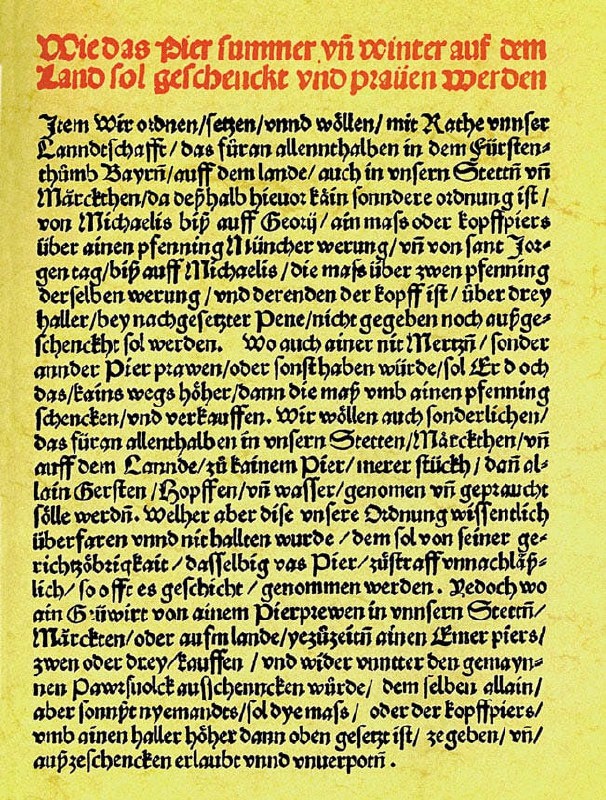 Wie das Pier summer vñ winter auf dem
Land sol geschenckt vnd praüen werden
Item Wir ordnen/setzen/vnnd wöllen/ mit Rathe vnnser
Lanndtschafft/ das füran allennthalben in dem Fürsten-
thůmb Bayrñ/auff dem lande/ auch in vnsern Stettñ vñ
Märckthen/da deßhalb hieuor kain sonndere ordnung ist/
von Michaelis biß auff Georij/ ain mass oder kopffpiers
über ainen pfenning Müncher werung/ vñ von sant Jor-
gen tag/biß auff Michaelis/ die mass über zwen pfenning
derselben werung/ vnd derenden der kopff ist/ über drey
haller/bey nachgesetzter Pene/nicht gegeben noch außge-
schenckht sol werden. Wo auch ainer nit Mertzñ/ sonder
annder Pier prawen/oder sonst haben würde/sol Er doch
das/kains wegs höher/dann die maß vmb ainen pfenning
schencken/vnd verkauffen. Wir wöllen auch sonderlichen/
das füran allenthalben in vnsern Stetten/Märckthen/vñ
auff dem Lannde/zů kainem Pier/merer stückh/dañ al-
lain Gersten/Hopffen/vñ wasser/genomen vñ gepraucht
sölle werdñ. Welher aber dise vnsere Ordnung wissentlich
überfaren vnnd nit hallten wurde/ dem sol von seiner ge-
richtzöbrigkait/dasselbig vas Pier/zůstraff vnnachläß-
lich/ so offt es geschicht/ genommen werden. Yedoch wo
ain Geüwirt von ainem Pierprewen in vnnsern Stettñ/
Märckten/oder aufm lande/yezůzeitñ ainen Emer piers/
zwen oder drey/kauffen/ vnd wider vnntter den gemayn-
nen Pawrsuolck ausschenncken würde/ dem selben allain/
aber sonnßt nyemandts/sol dye mass/ oder der kopffpiers/
vmb ainen haller höher dann oben gesetzt ist/ ze geben/ vñ/
außzeschencken erlaubt vnnd vnuerpotñ.